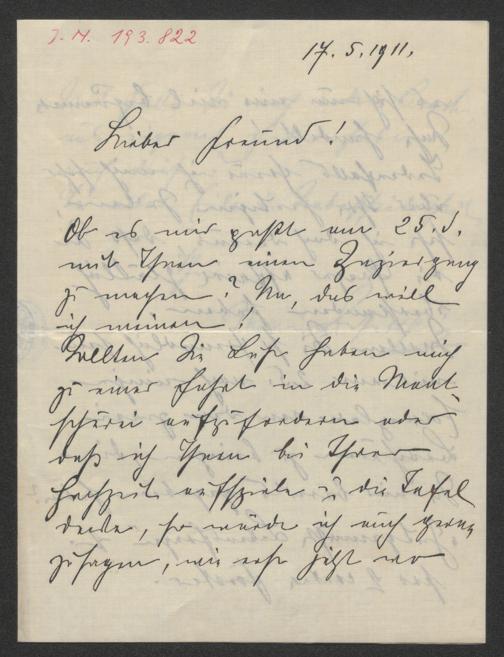 J. N. 193.822
17. 5. 1911.
Lieber Freund!
Ob es mir paßt am 25. d.
mit Ihnen einen Spaziergang
zu machen? Na, das will
ich meinen!
Sollten Sie Lust haben mich
zu einer Fahrt in die Mant
schurei aufzufordern oder
daß ich Ihnen bei Ihrer
Hochzeit aufspiele u. die Tafel
decke, so würde ich auch gerne
zusagen, wie erst jetzt wo